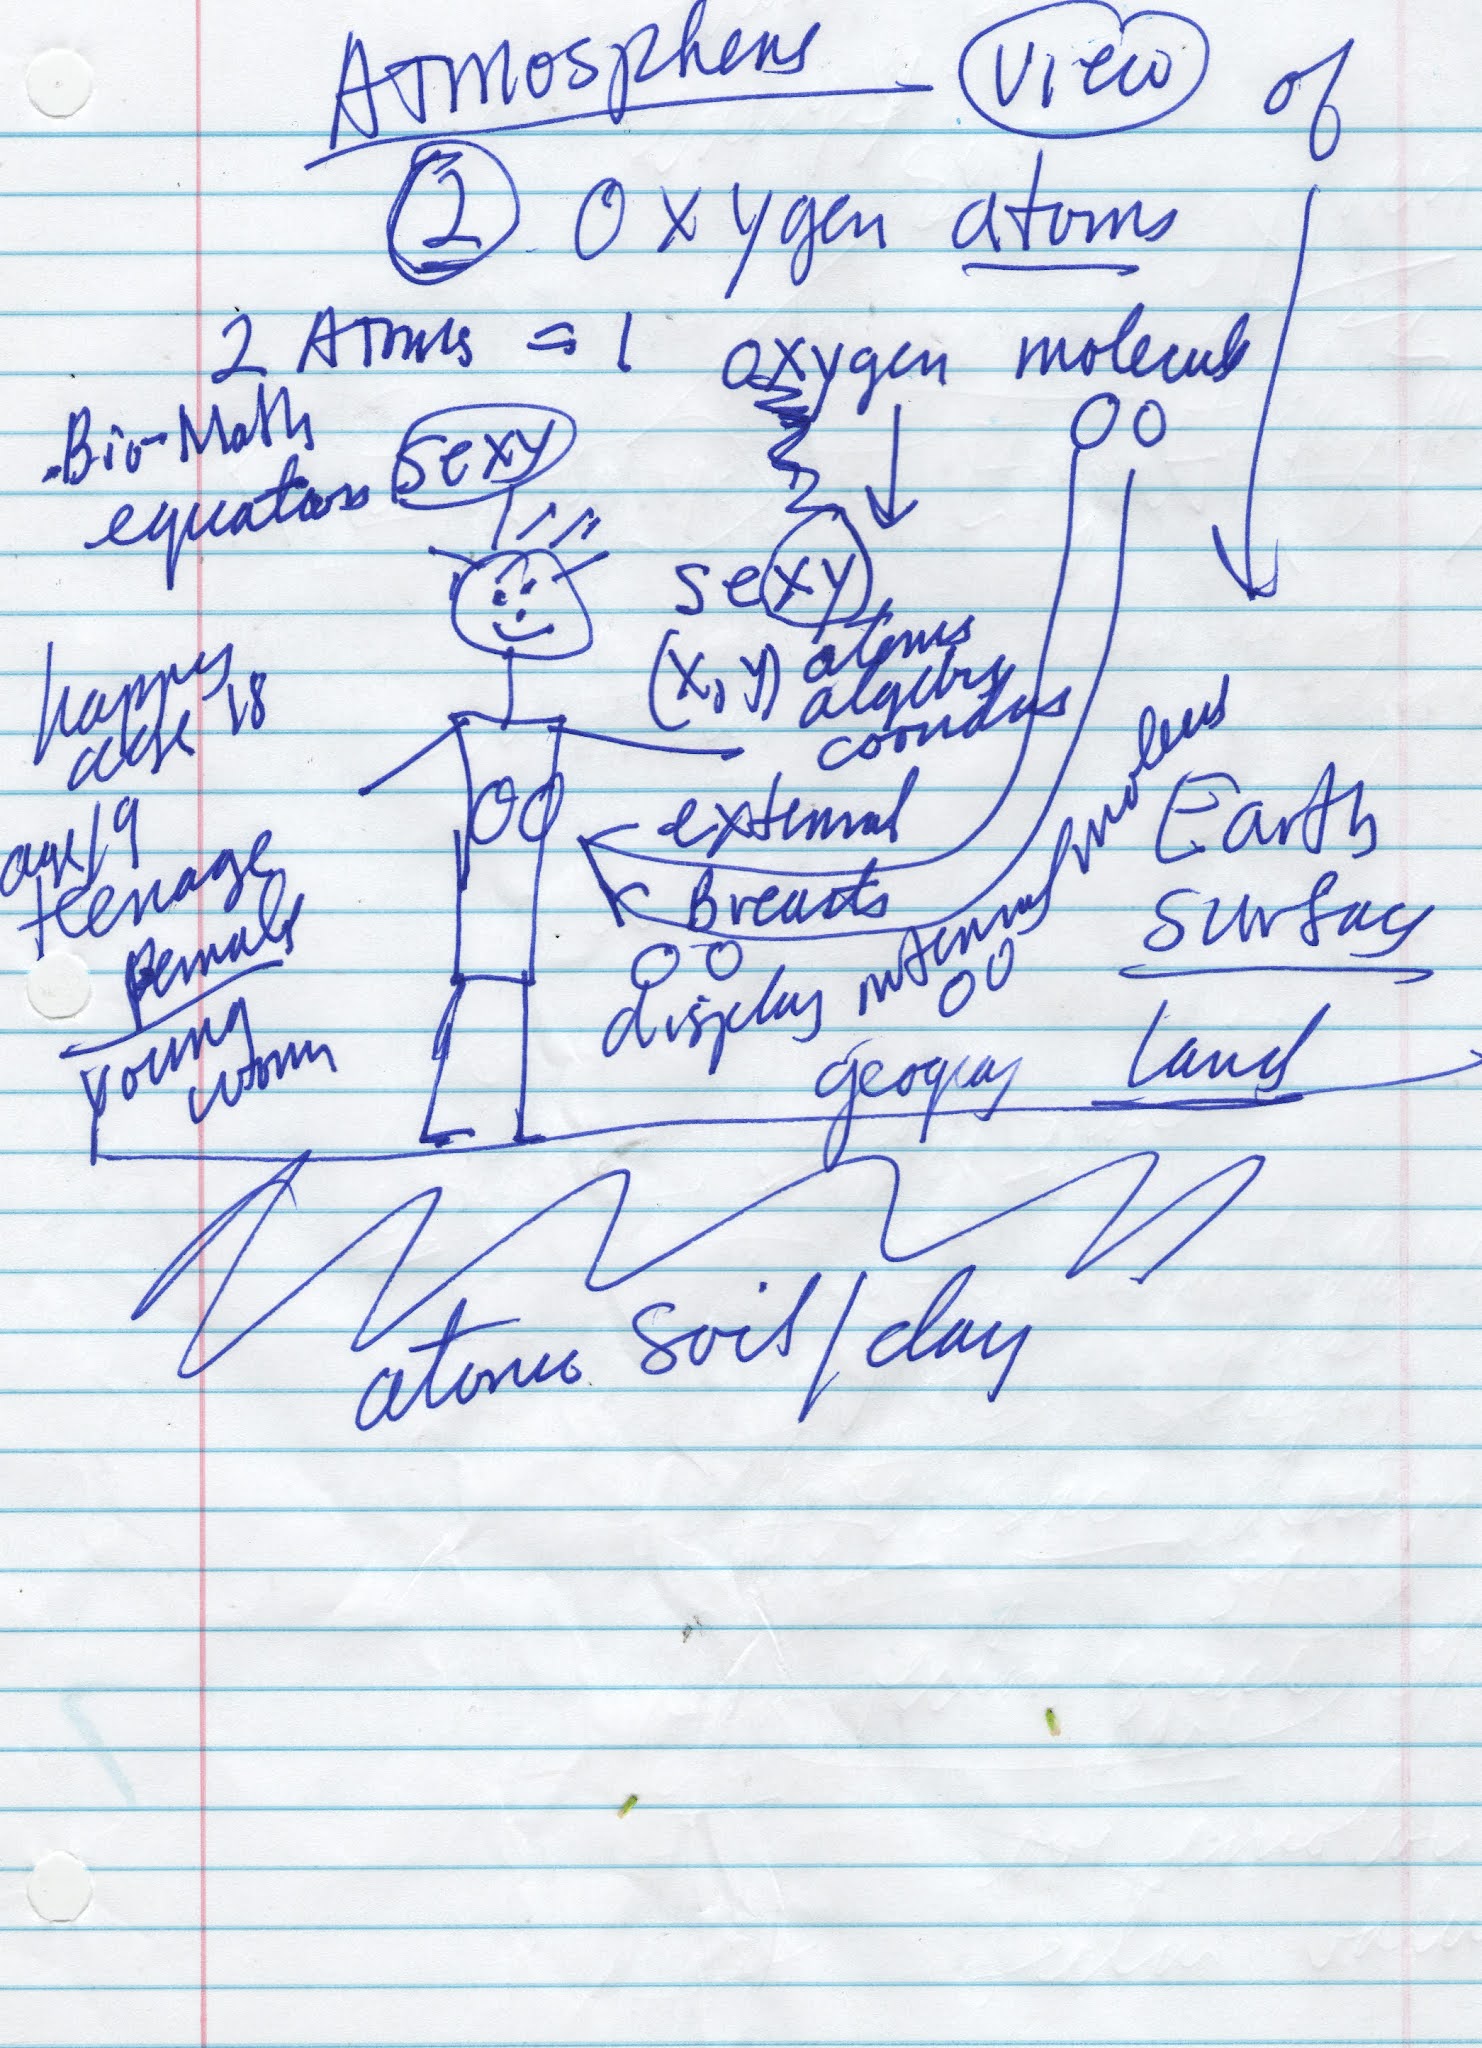 Atmosphere View of
2 Oxygen atoms
2 Atoms = 1 oxygen molecule
OO
Bio-Math
equations
sexy
sexy
(x, y) atoms
algebra
happy
age 18
age 19
teenage
female
young
woman
OO
external
Breasts
OO
display internal
OO
Earth
Surface
land
atomic soil/clay